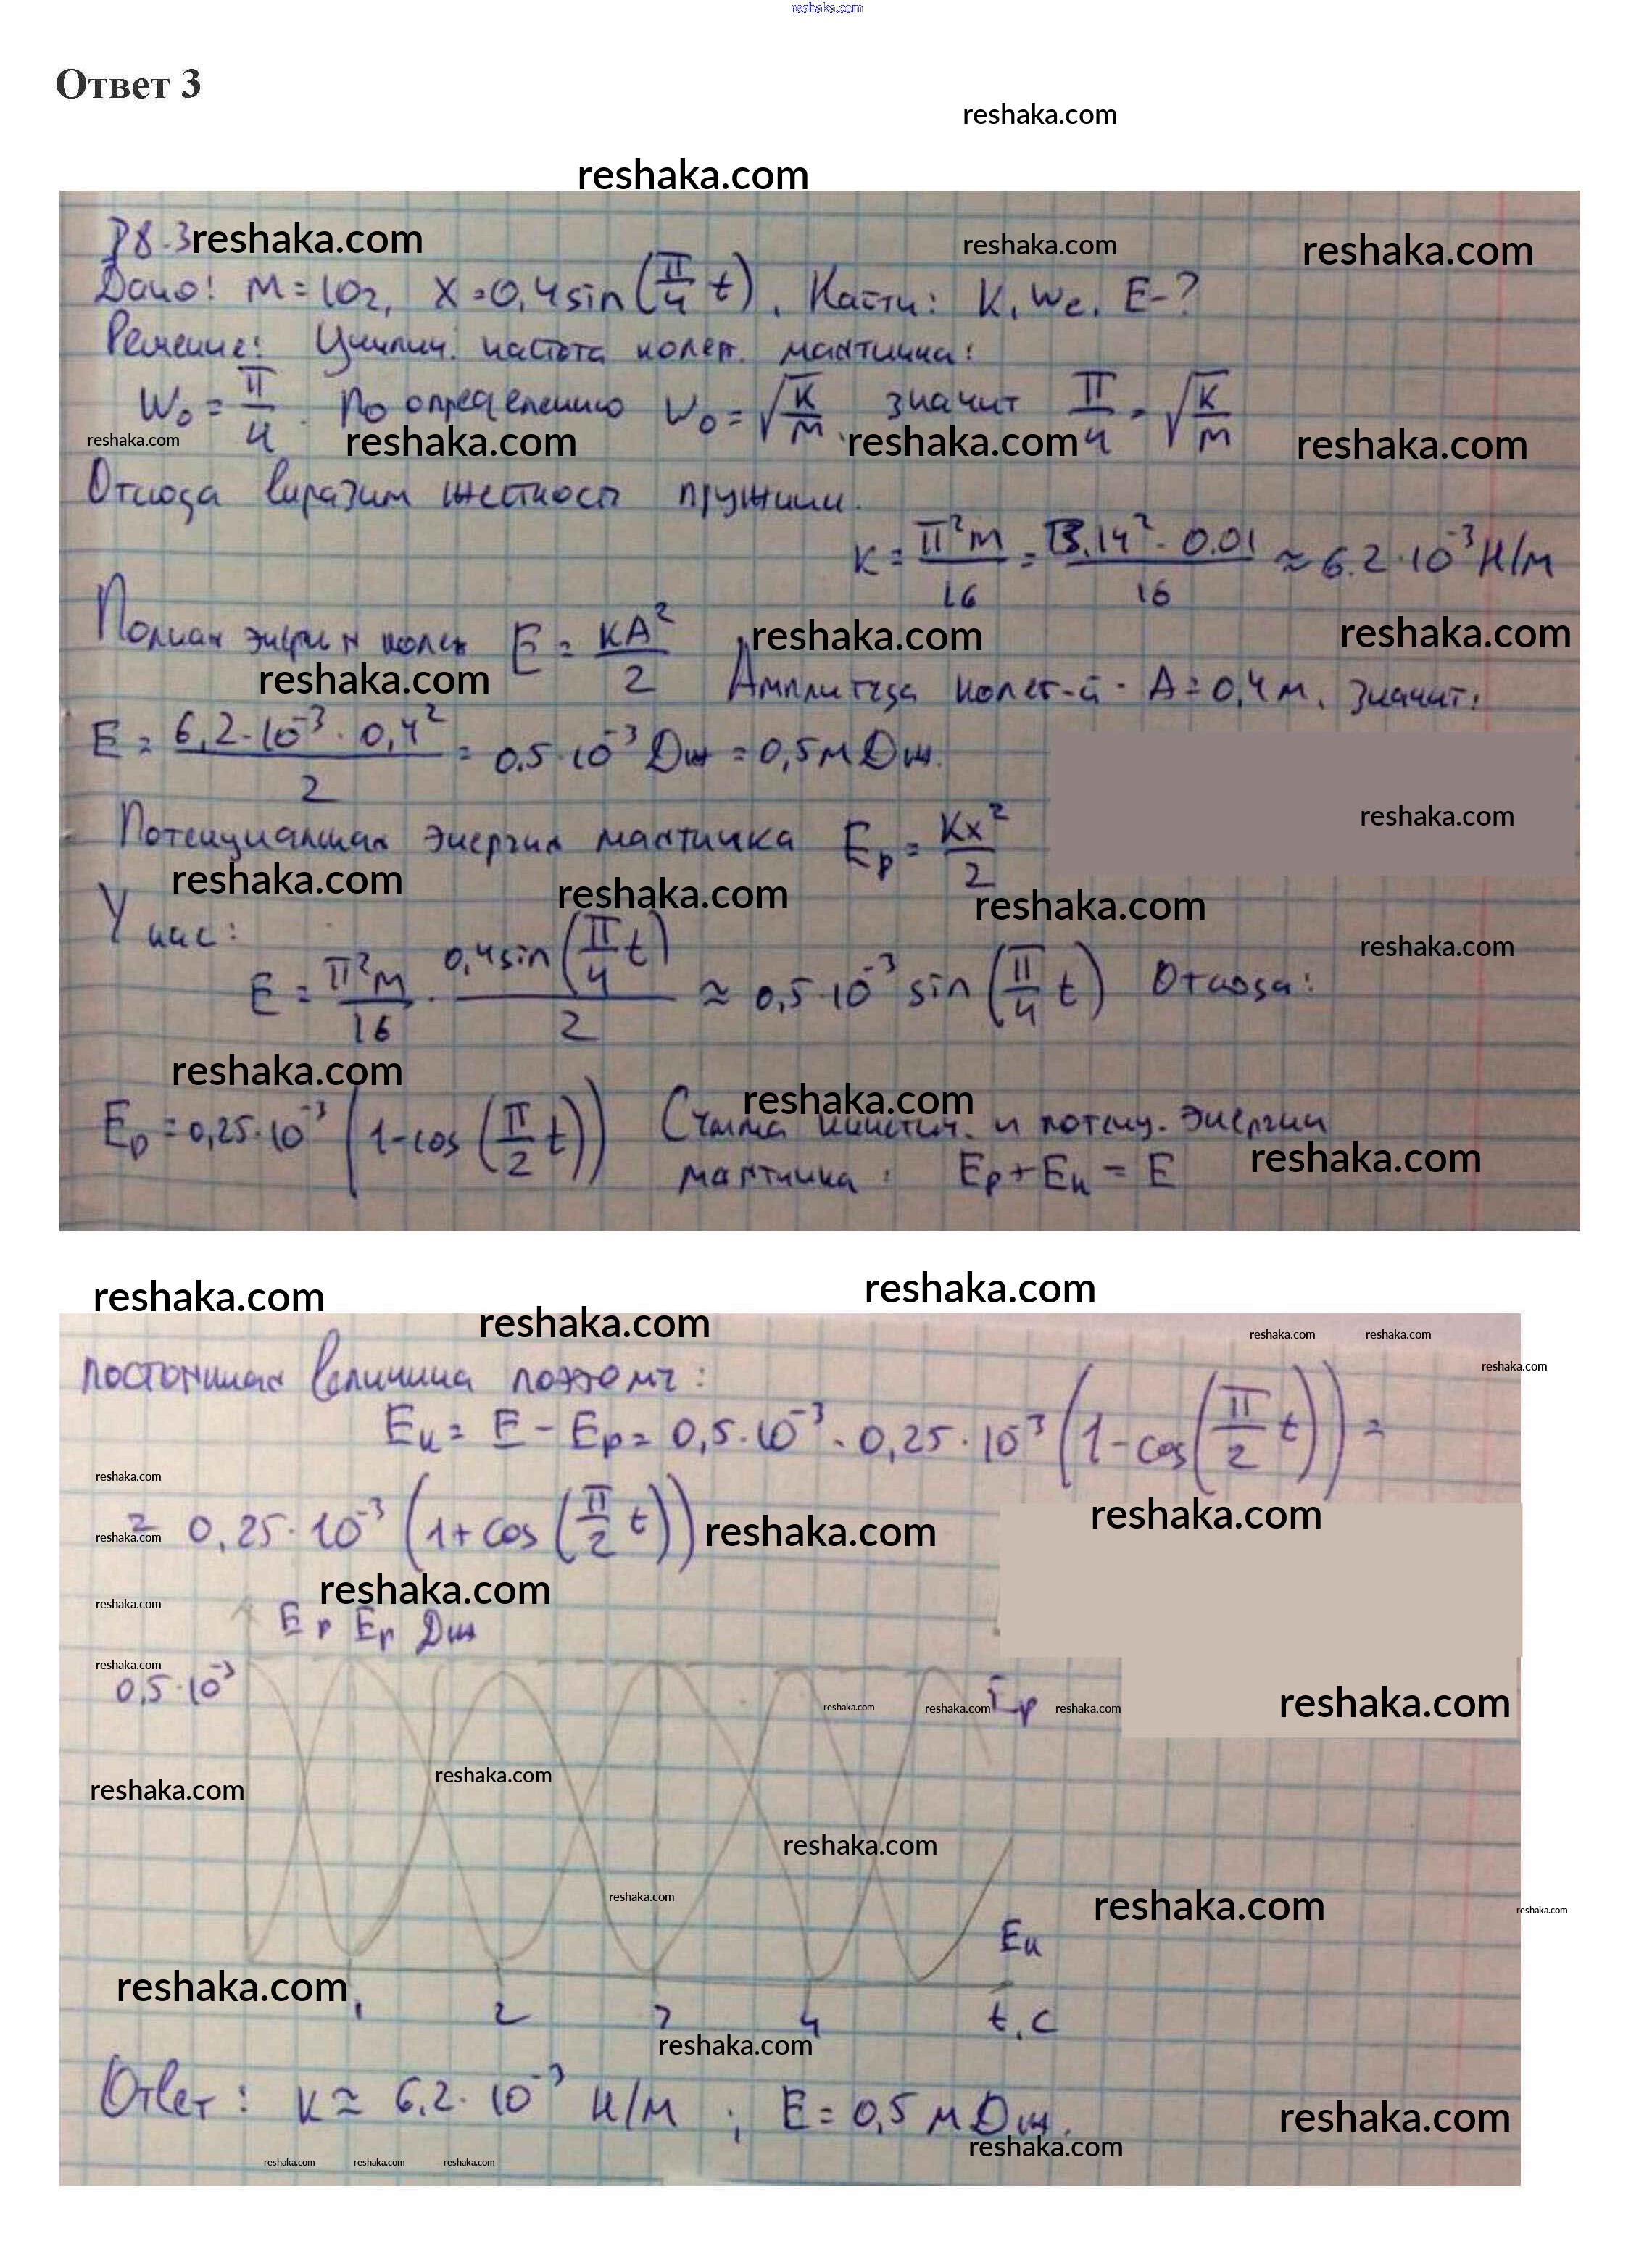 reshaka.com
Ответ 3
reshaka.com
reshaka.com
reshaka.com
reshaka.com
reshaka.com
Дано: m=10г, x=0,4sin(π/4 t). Найти: K, We, E-?
Решение: Циклич. частота колеб. маятника:
W₀ = π/4. По определению W₀ = √(K/m), значит π/4 = √(K/m)
reshaka.com reshaka.com reshaka.com reshaka.com
Отсюда выразим жесткость пружины.
K = π²m/16 = 3.14² · 0.01/16 ≈ 6.2·10⁻³ Н/м
reshaka.com reshaka.com
Полная энергия колеб E = KA²/2 Амплитуда колеб-й - A=0,4м. Значит:
reshaka.com
E = 6,2·10⁻³·0,4²/2 = 0.5·10⁻³ Дж = 0,5мДж.
reshaka.com
Потенциальная энергия маятника Ep = Kx²/2
reshaka.com reshaka.com reshaka.com
У нас:
reshaka.com
E = π²m/16 · 0,4sin(π/4 t)/2 ≈ 0,5·10⁻³ sin(π/4 t) Отсюда:
reshaka.com
reshaka.com
Ep = 0,25·10⁻³ (1-cos(π/2 t)) Сумма кинетич. и потенц. энергии
reshaka.com
маятника: Ep+Eк = E
reshaka.com reshaka.com
reshaka.com
reshaka.com reshaka.com
reshaka.com
постоянная величина поэтому:
Eк = E - Ep = 0,5·10⁻³ - 0,25·10⁻³ (1-cos(π/2 t)) =
reshaka.com
reshaka.com
= 0,25·10⁻³ (1+cos(π/2 t))
reshaka.com reshaka.com
reshaka.com
reshaka.com
Ep Ep Дж
reshaka.com
0,5·10⁻³
reshaka.com reshaka.com Ep reshaka.com reshaka.com
reshaka.com
reshaka.com
reshaka.com
reshaka.com
reshaka.com reshaka.com
Eк
reshaka.com
1 2 3 4 t, с
reshaka.com
Ответ: K ≈ 6,2·10⁻³ Н/м; E = 0,5 мДж.
reshaka.com
reshaka.com
reshaka.com reshaka.com reshaka.com